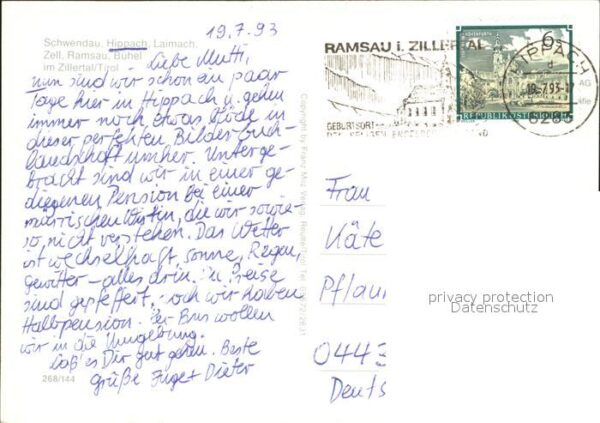 19.7.93
Schwendau, Hippach, Laimach,
Zell, Ramsau, Bühel
im Zillertal/Tirol
Liebe Mutti,
nun sind wir schon ein paar
Tage hier in Hippach u. gehen
immer noch etwas öde in
dieser perfekten Bilderbuch-
landschaft umher. Unterge-
bracht sind wir in einer ge-
diegenen Pension bei einer
mürrischen Wirtin, die wir sowie-
so nicht verstehen. Das Wetter
ist wechselhaft, Sonne, Regen,
Gewitter – alles drin. Die Preise
sind gepfeffert, doch wir haben
Halbpension. Per Bus wollen
wir in die Umgebung.
Laß es Dir gut gehn. Beste
Grüße Dieter
268/144
Copyright by Franz Verlag Tel.
RAMSAU i. ZILLERTAL
GEBURTSORT
HIPPACH
19.7.93
6283
6
REPUBLIK ÖSTERREICH
AG
Frau
Käte
Pflau
0443
Deuts
privacy protection
Datenschutz